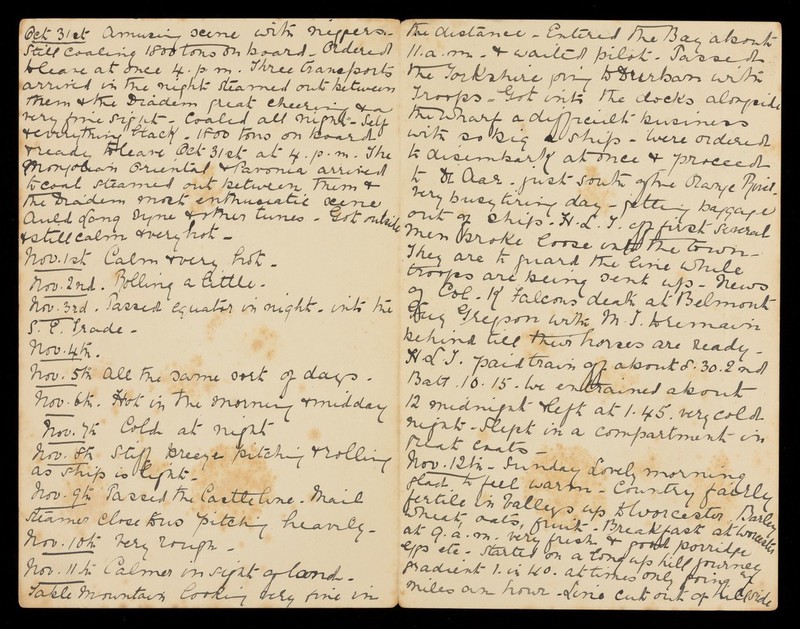 Oct 31st Amusing scene with niggers.
Still Coaling 1800 tons on board - Ordered
to leave at once 4.p.m. Three transports
arrived in the night steamed out between
them & the Diadem great cheering & a
very fine sight - Coaled all night - Self
& everything black - 1800 tons on board
& ready to leave Oct 31st at 4.p.m. The
Mongolian Oriental & Pavonia arrived
to coal steamed out between them &
the Diadem most enthusiastic scene
Auld Lang Syne & other tunes - Got outside
& still calm & very hot -
Nov. 1st Calm & very hot -
Nov. 2nd. Rolling a little.
Nov. 3rd. Passed equator in night - into the
S. E. Trade -
Nov. 4th.
Nov. 5th All the same sort of days.
Nov. 6th. Hot in the morning & midday
Nov. 7th Cold at night
Nov. 8th Stiff breeze pitching & rolling
as ship is light -
Nov. 9th Passed the Castle line - Mail
steamer close to us pitching heavily -
Nov. 10th Very rough -
Nov. 11th Calmer in sight of land -
Table Mountain looking very fine in
the distance - Entered the Bay about
11.a.m - & waited pilot - Passed
the Yorkshire going to Durban with
Troops - Got into the docks alongside
the wharf a difficult business
with so big a ship - Were ordered
to disembark at once & proceed
to De Aar - just south of the Orange River.
Very busy tiring day - getting baggage
out of ship - H.L.I. off first several
men broke loose into the town -
They are to guard the line while
troops are being sent up - News
of Col. K Falcons death at Belmont
Guy Gregson with M.I. to remain
behind till their horses are ready -
H.L.I. paid train off about 8.30. 2nd
Batt. 10.15 - We entrained about
12 midnight & left at 1.45. very cold
night - Slept in a compartment in
great coats -
Nov. 12th - Sunday Lovely morning
glad to feel warm - Country fairly
fertile in valleys up to Worcester, Barley
wheat, oats, fruit - Breakfast at Worcester
at 9.a.m. very fresh & good porridge
eggs etc - Started on a long up hill journey
gradient 1. in 40. at times only going
miles an hour - Line cut out of hillside